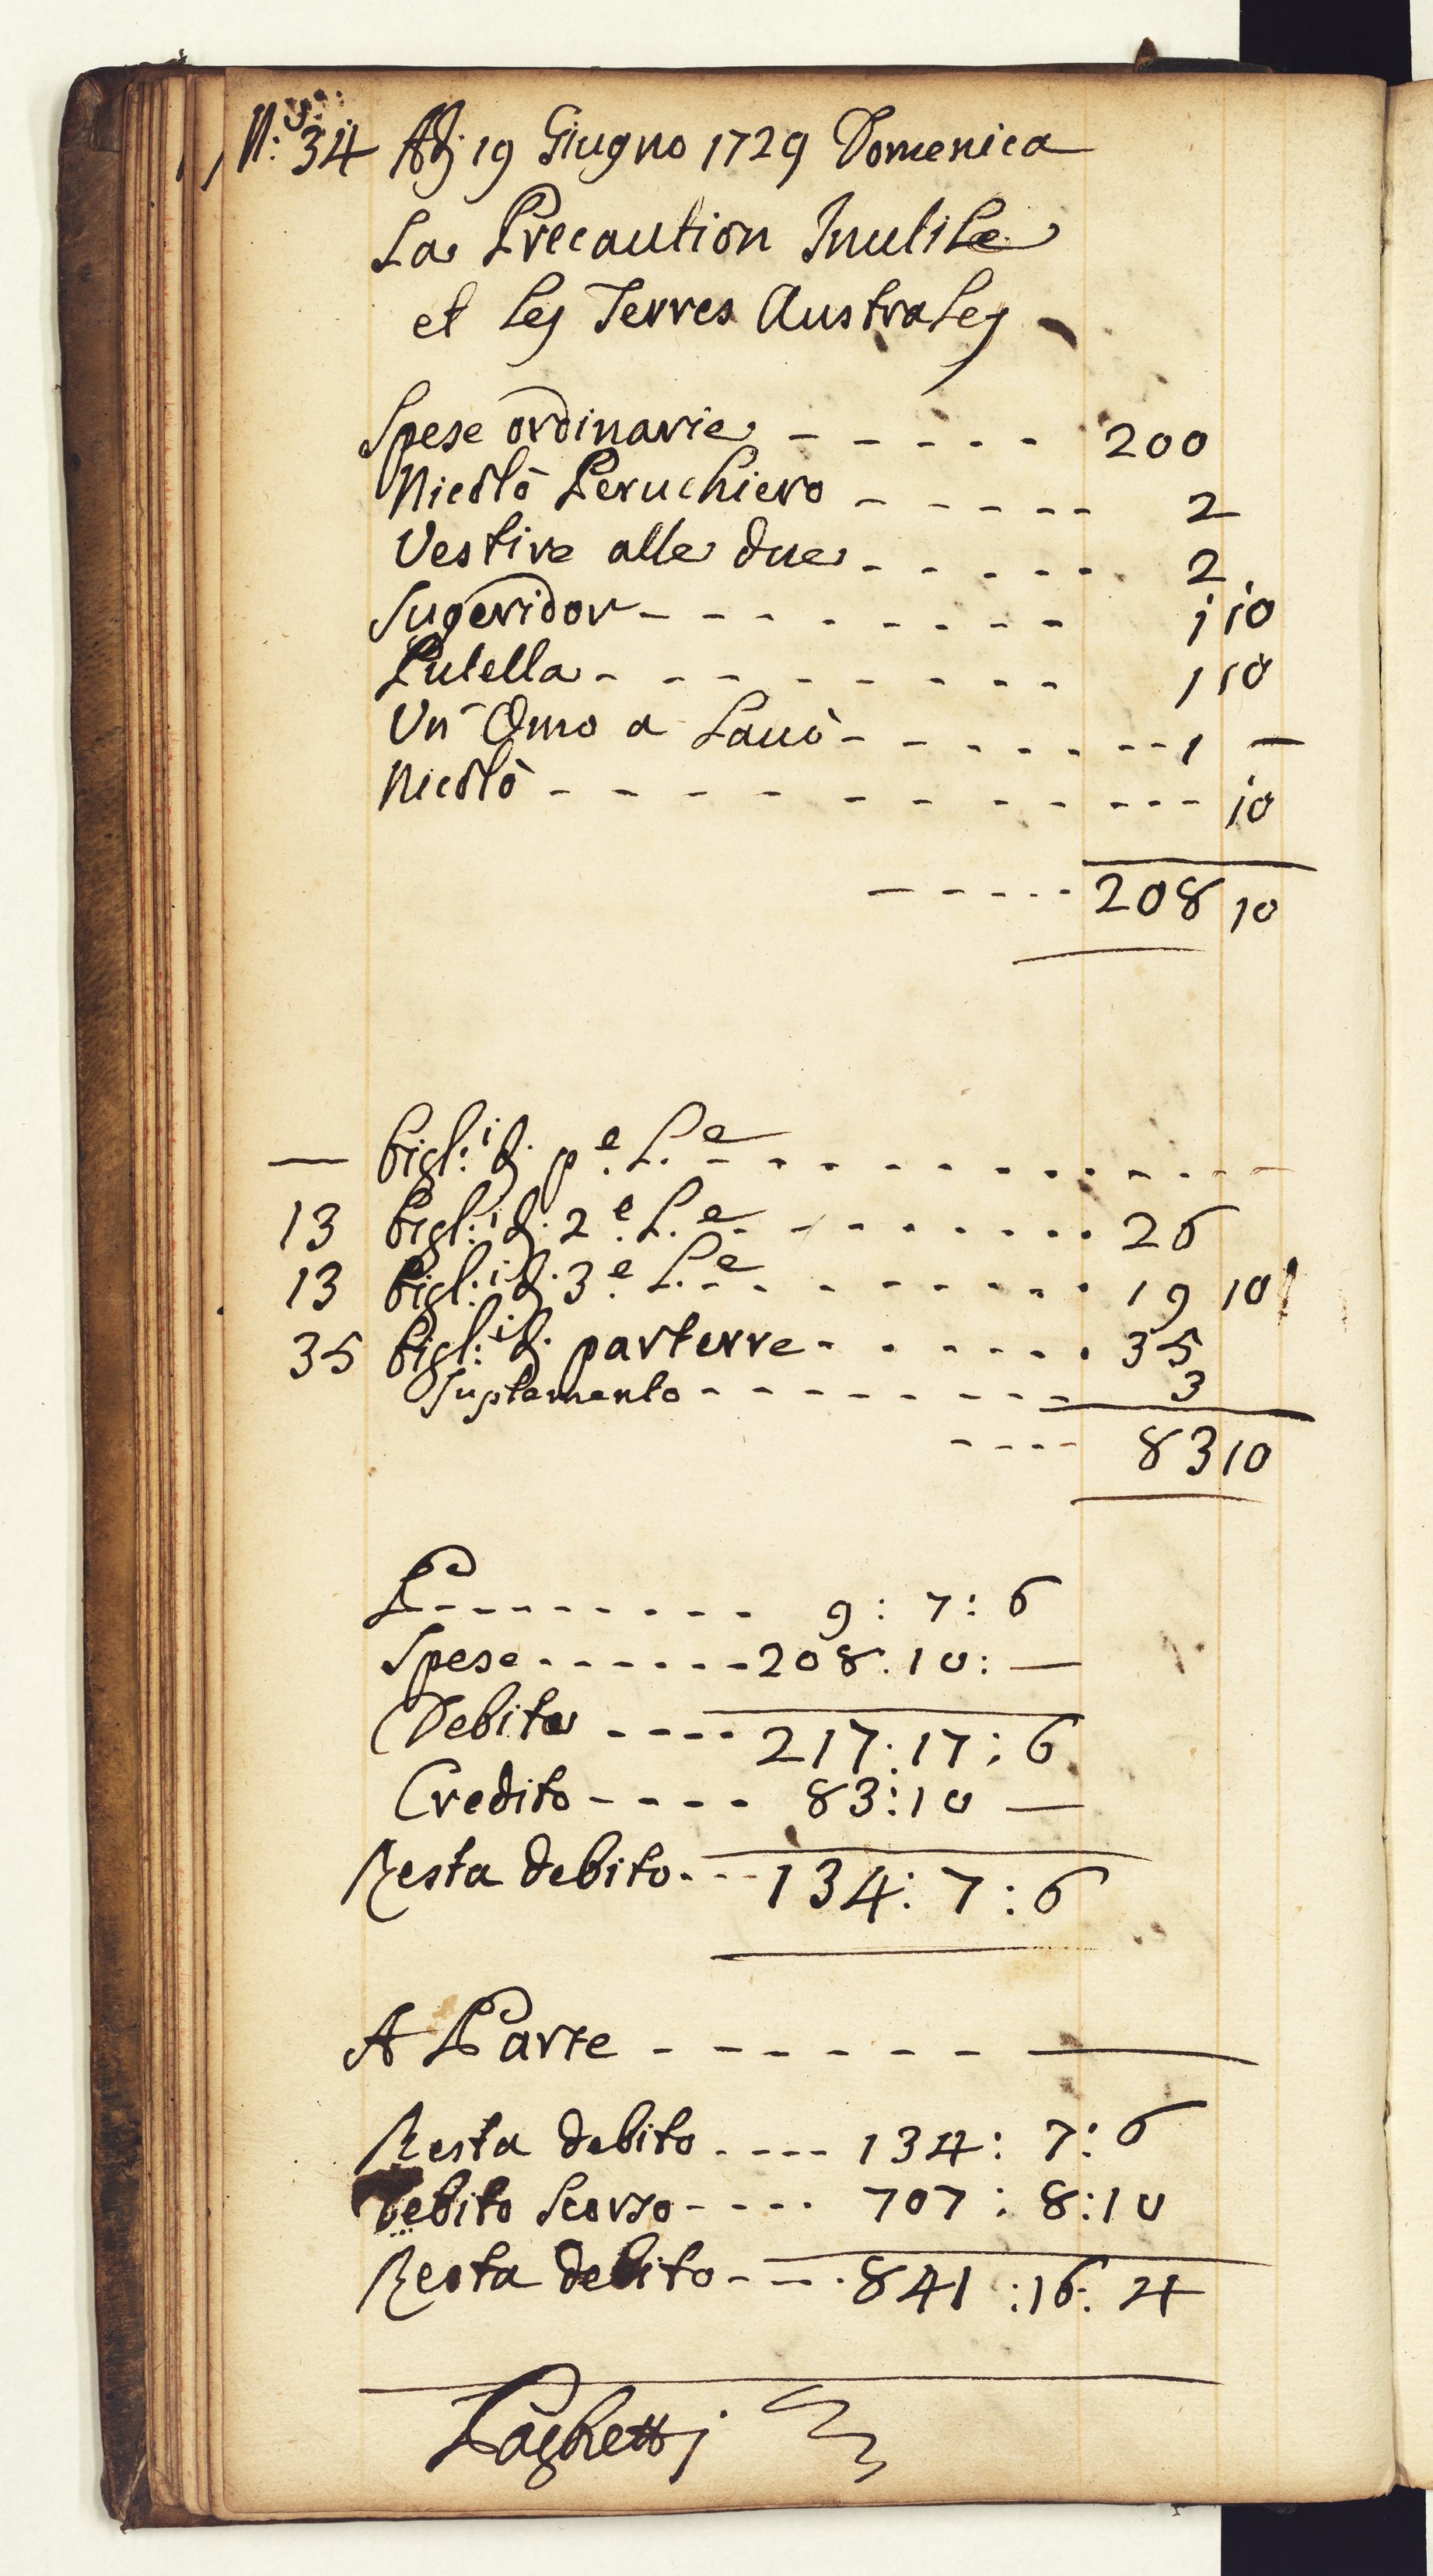 N: 34 Adj 19 Giugno 1729 Domenica
La Precaution Inutile
et les Terres Australes
Spese ordinarie - - - - - 200
Nicolò Peruchiero - - - - - 2
Vestire alle due - - - - - 2
Sugeridor - - - - - - - - 1 10
Putella - - - - - - - - 1 10
Un Omo a Lauò - - - - - - - 1 —
Nicolò - - - - - - - - - - - 10
- - - - - 208 10
— bigl:i di p.e L.e - - - - - - - - - -
13 bigl:i di 2.e L.e - - - - - - - 26
13 bigl:i di 3.e L.e - - - - - - - 19 10
35 bigl:i di parterre - - - - - - 35
Suplemento - - - - - - - - 3
- - - - 83 10
P - - - - - - - - - 9: 7: 6
Spese - - - - - - 208. 10: —
Debito - - - - 217: 17: 6
Credito - - - - 83: 10 —
Resta debito - - - 134: 7: 6
A Parte - - - - - - —
Resta debito - - - - 134: 7: 6
Debito Scorso - - - - 707: 8: 10
Resta debito - - - 841: 16: 4
Paghetti